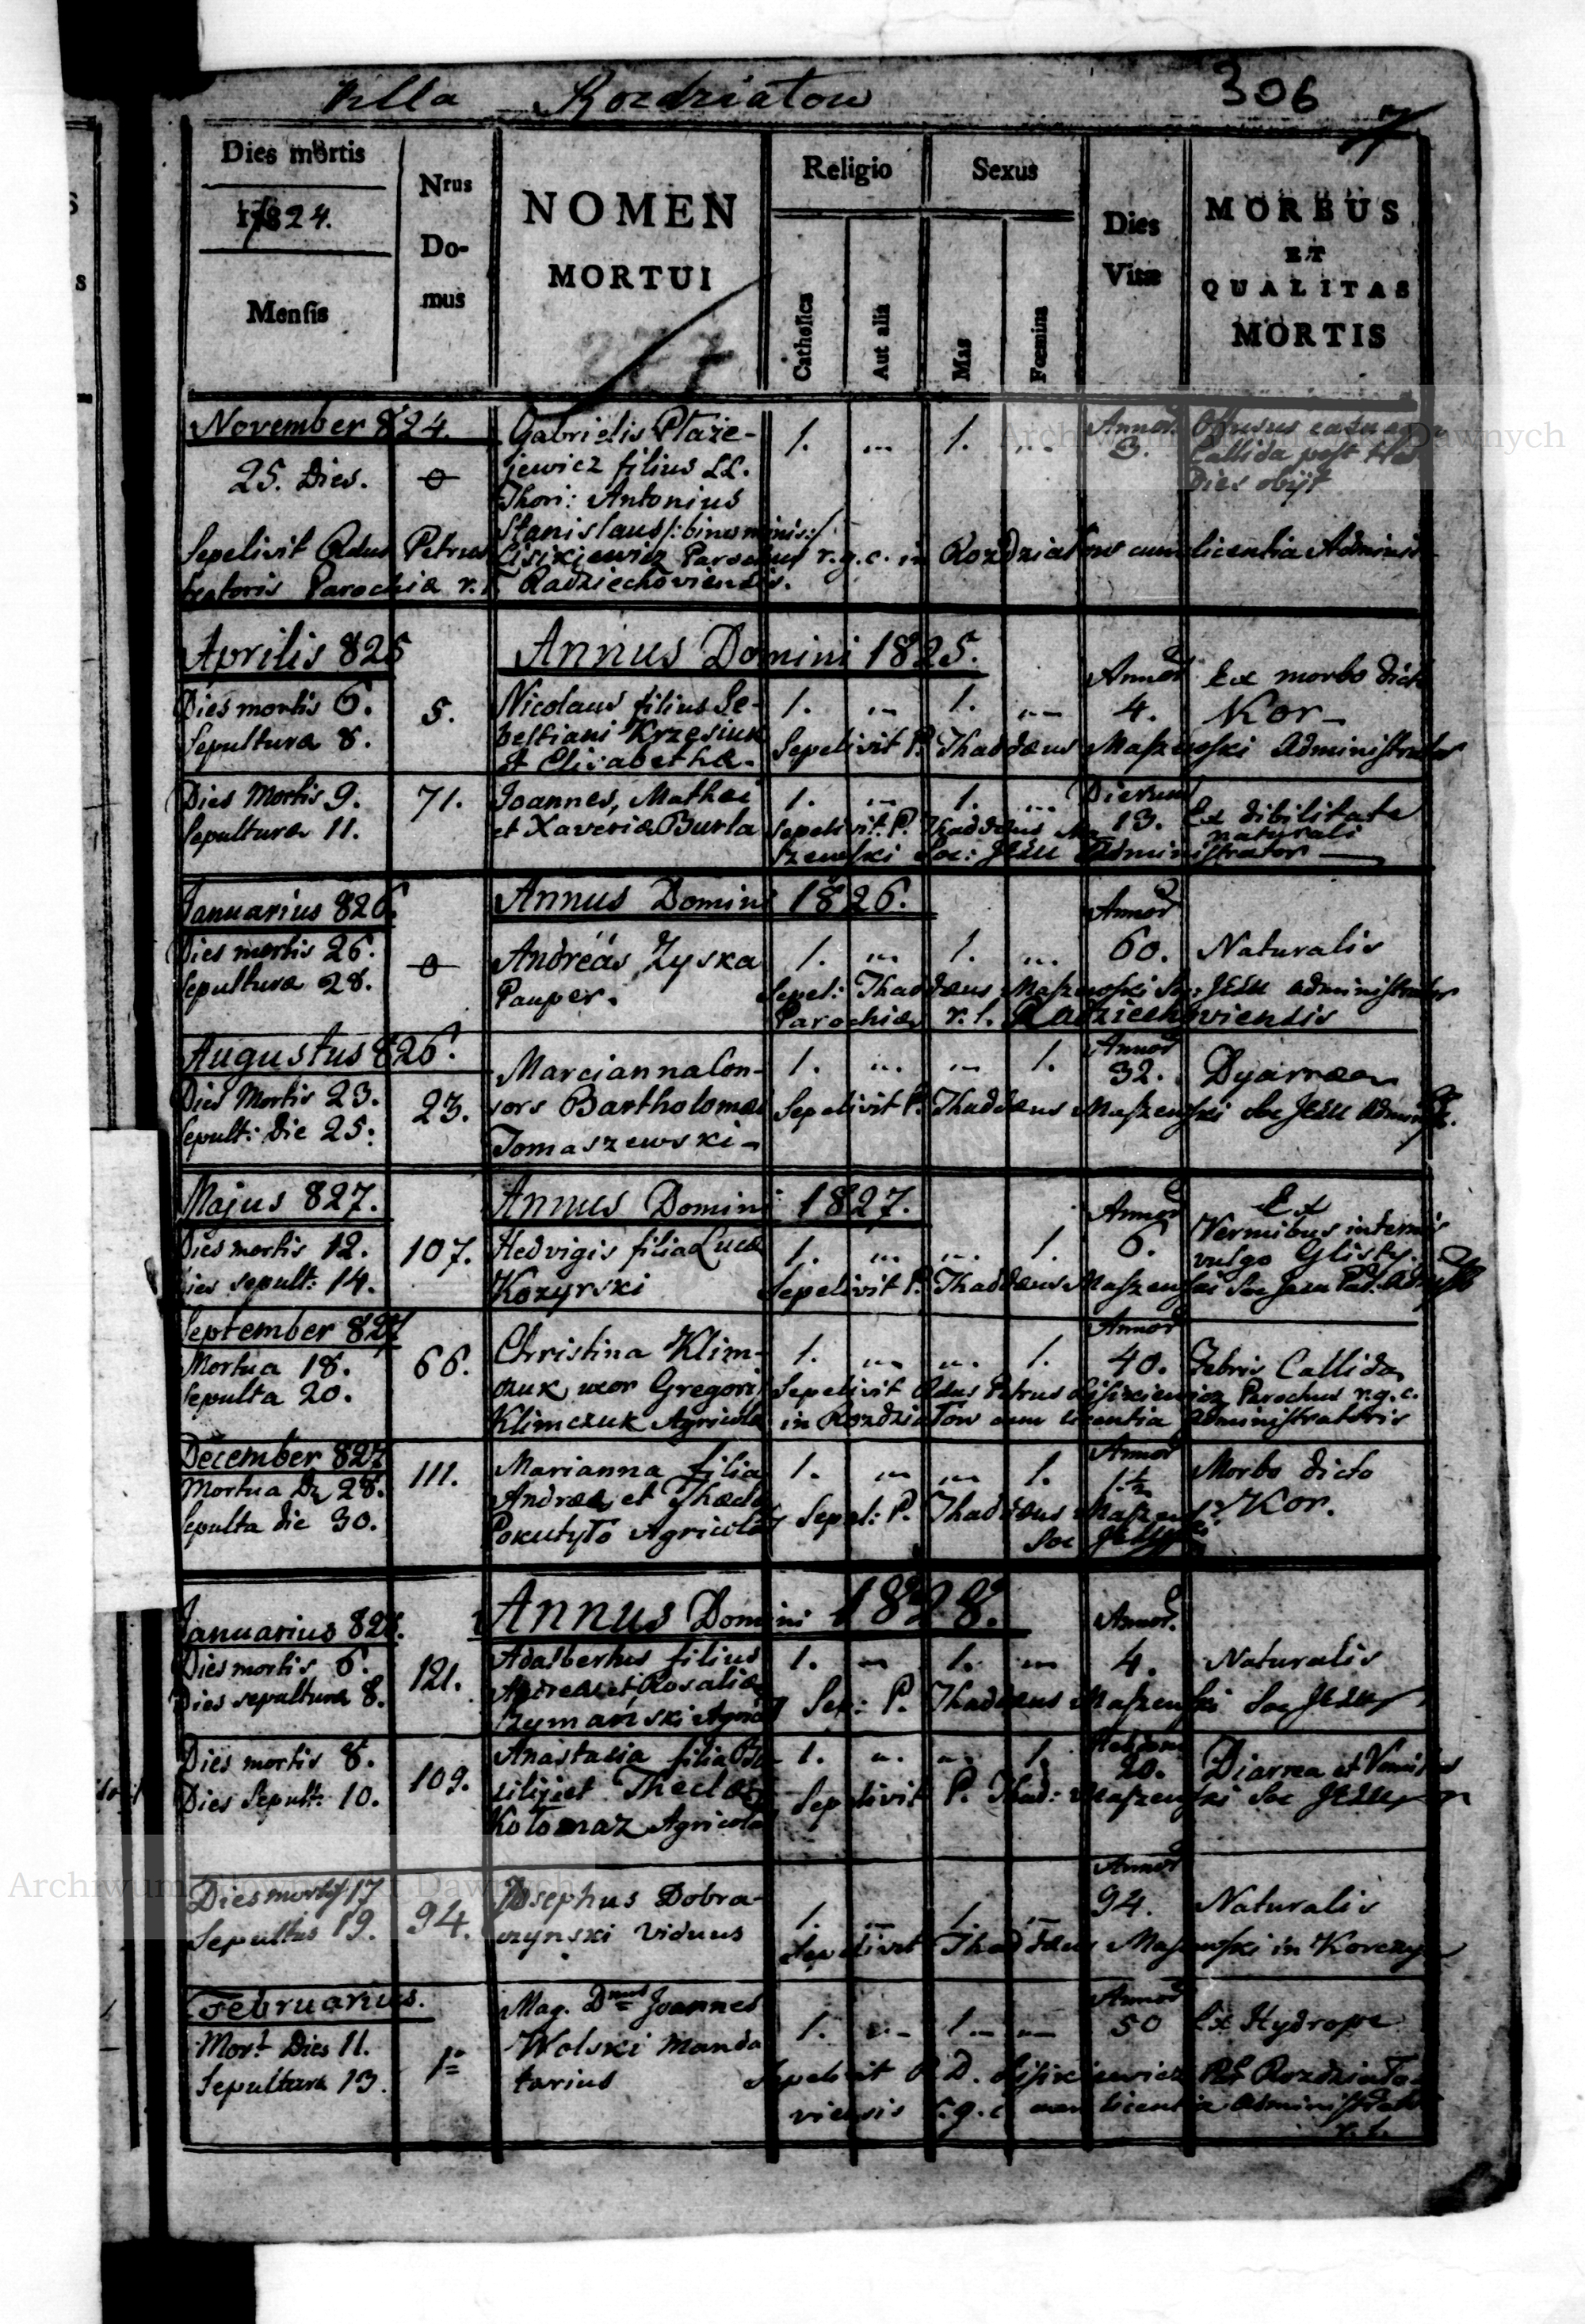 Villa Rozdziatow
306
Dies mortis
1824.
Mensis
Nrus
Do-
mus
NOMEN
MORTUI
277
Religio
Catholica
Aut alia
Sexus
Mas
Fœmina
Dies
Vitæ
MORBUS
ET
QUALITAS
MORTIS
November 824.
25. Dies.
0
Gabrielis Płaże-
jewicz filius LL.
Thori: Antonius
Stanislaus /:binominis:/
1. ... 1. ...
Annor.
3.
Callida post
Dies obijt
Sepelivit Rdus Petrus Lisikiewicz Parochus r.g.c. in Rozdziatow cum licentia Adminis-
tratoris Parochiæ r.l. Radziechoviensis.
Aprilis 825
Annus Domini 1825.
Dies mortis 6.
Sepultura 8.
5.
Nicolaus filius Se-
bestiani Krzęsiuk
et Elisabethæ.
1. ... 1. ...
Annor
4.
Ex morbo dicto
Kor-
Sepelivit P. Thaddæus Maszewski Administrator
Dies Mortis 9.
Sepultura 11.
71.
Joannes, Mathei
et Xaveriæ Burla
1. ... 1. ...
Dierum
13.
Ex dibilitate
naturali
Sepelivit P. Thaddæus Ma
szewski Soc: Jesu Administrator
Januarius 826.
Annus Domini 1826.
Dies mortis 26.
Sepultura 28.
0
Andreas Zyska
Pauper.
1. ... 1. ...
Annor
60.
Naturalis
Sepel: Thaddæus Maszewski Soc: Jesu Administrator
Parochiæ r.l. Radziechoviensis
Augustus 826.
Dies Mortis 23.
Sepult: Die 25.
23.
Marcianna Con-
sors Bartholomæi
Tomaszewski-
1. ... ... 1.
Annor
32.
Dyarræa
Sepelivit P. Thaddæus Maszewski Soc Jesu
Majus 827.
Annus Domini 1827.
Dies mortis 12.
Dies sepult: 14.
107.
Hedvigis filia Lucæ
Kozyrski
1. ... ... 1.
Annor
6.
Ex
Vermibus internis
vulgo Glisty.
Sepelivit P. Thaddæus Maszewski Soc Jesu
September 827
Mortua 18.
Sepulta 20.
66.
Christina Klim-
czuk uxor Gregorij
Klimczuk Agricolæ
1. ... ... 1.
Annor
40.
Febris Callida
Sepelivit Rdus Petrus Lisikiewicz Parochus r.g.c.
in Rozdziatow cum licentia Administratoris
December 827
Mortua Die 28.
Sepulta die 30.
111.
Marianna filia
Andreæ et Theclæ
Pokutyło Agricolæ
1. ... ... 1.
Annor
1 1/2
Morbo dicto
Kor.
Sepel: P. Thaddæus Maszewski
Soc Jesu
Januarius 828.
Annus Domini 1828.
Dies mortis 6.
Dies sepultura 8.
121.
Adalbertus filius
Andreæ et Rosaliæ
Szymański Agricol
1. ... 1. ...
Annor.
4.
Naturalis
Sep: P. Thaddæus Maszewski Soc Jesu
Dies mortis 8.
Dies Sepult: 10.
109.
Anastasia filia Ba-
silij et Theclæ
Kołomaz Agricolæ
1. ... ... 1.
20.
Diarrea et Vomitus
Sepelivit P. Thad: Maszewski Soc Jesu
Dies mortis 17
Sepultus 19.
94.
Josephus Dobra-
czynski Viduus
1. ... 1. ...
Annor
94.
Naturalis
Sepelivit Thaddæus Maszewski in Korczyn
Februarius.
Mort Dies 11.
Sepultura 13.
1=
Mag. Dnus Joannes
Wolski Manda
tarius
1. ... 1. ...
Annor
50
Ex Hydrope
Sepelivit R.D. Lisikiewicz Rozdziato-
viensis r.g.c. cum licentia Administratoris
r.l.